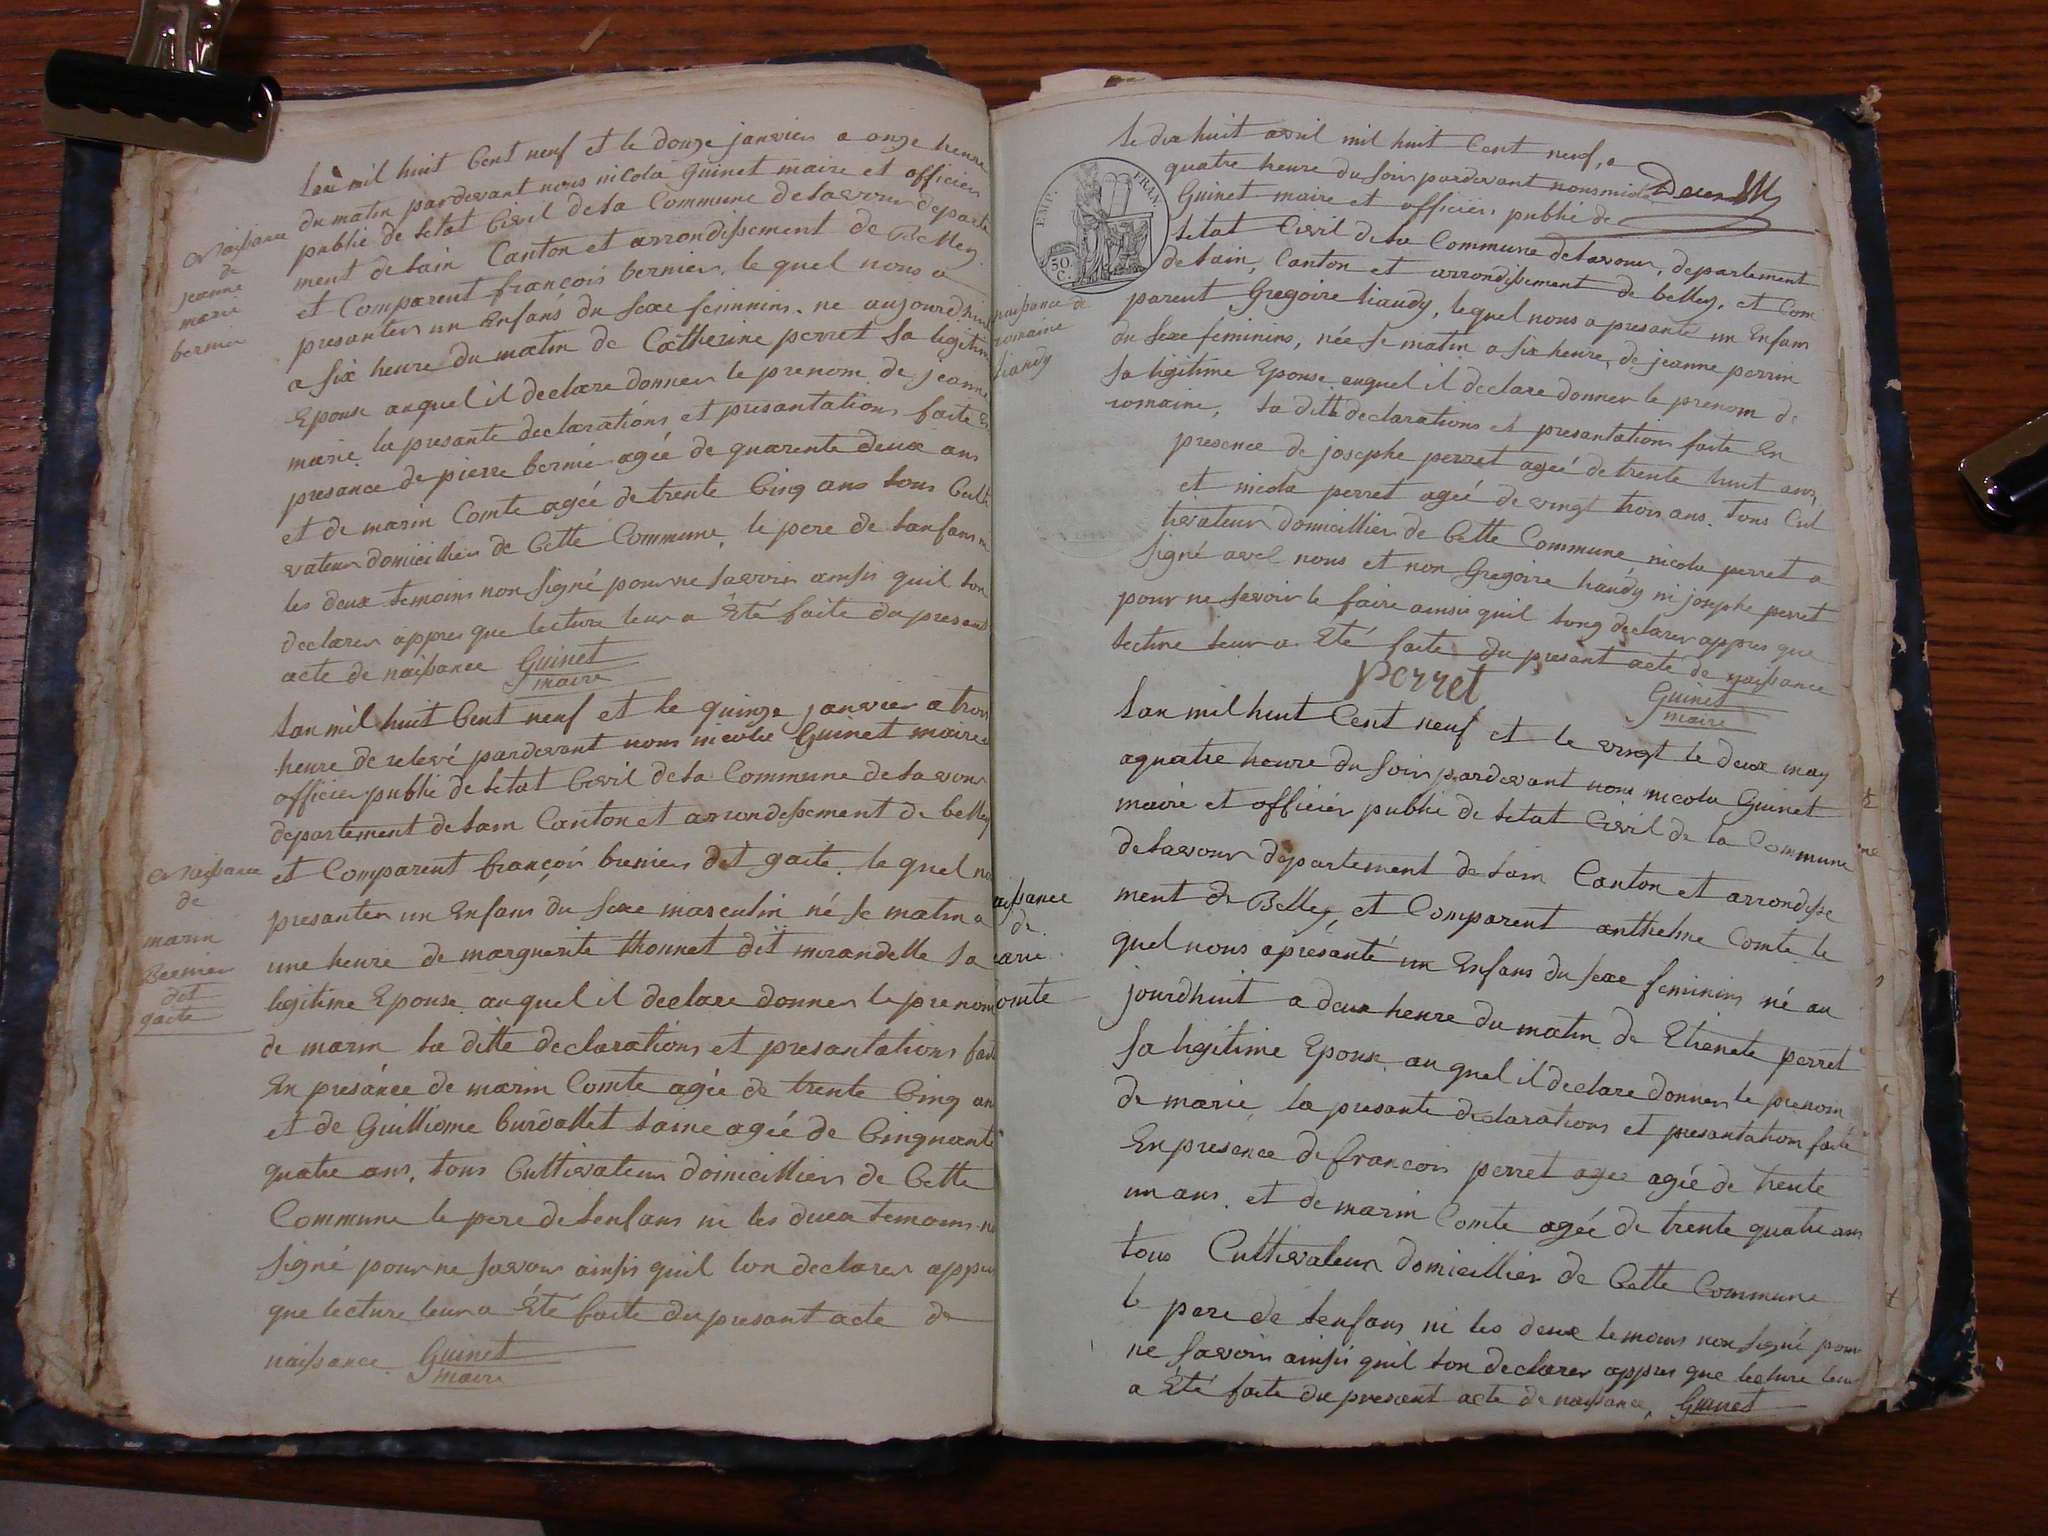 Lan mil huit Cent neuf et le douze janvier a onze heure
du matin pardevant nous nicola Guinet maire et officier
public de letat Civil de la Commune de lavour departe
ment de lain Canton et arrondissement de Belley
et Comparent françois bernier, le quel nous a
presanter un Enfans du sexe feminins. ne aujourdhui
a six heure du matin de Catherine perret sa legitim
Epouse auquel il declare donner le prenom de jeanne
marie la presante declarations et presantations faite En
presance de pierre bernie agée de quarente deux ans
et de marin Comte agée de trente Cinq ans tous Culti
vateur domicillier de Cette Commune, le pere de lanfans ni
les deux temoins non signé pour ne savoir ainsis quil lon
declarer appres que lecture leur a Eté faite du presant
acte de naissance Guinet
maire
Naissance
de
jeanne
marie
bernier
Lan mil huit Cent neuf et le quinze janvier a trois
heure de relevé pardevant nous nicola Guinet maire
officier public de letat Civil de la Commune de lavour
departement de lain Canton et arrondissement de belley
et Comparent françois bernier dit gaite. le quel no
presanter un Enfans du sexe masculin né se matin a
une heure de marguerite thonnet dit mirandelle sa
legitime Epouse auquel il declare donner le prenom
de marin la ditte declarations et presantations faite
En presance de marin Comte agée de trente Cinq an
et de Guilliome burdallet laine agée de Cinquante
quatre ans, tous Cultivateur domicillier de Cette
Commune le pere de lenfans ni les deux temoins no
signé pour ne savoir ainsis quil lon declarer appres
que lecture leur a Eté faite du presant acte de
naissance Guinet
maire
Naissance
de
marin
Bernier
dit
gaite
Le dix huit avril mil huit Cent neuf, a
quatre heure du soir pardevant nous nicola
Guinet maire et officier public de
letat Civil de la Commune de lavour, departement
de lain, Canton et arrondissement de belley, et Com
parent Gregoire liaudy, lequel nous a presante un Enfans
du sexe feminins, née se matin a six heure, de jeanne perrin
sa legitime Epouse auquel il declare donner le prenom de
romaine, la ditte declarations et presantations faite En
presence de josephe perret agée de trente huit ans,
et nicola perret agée de vingt trois ans. tous Cul
tivateur domicillier de Cette Commune nicola perret a
signé avec nous et non Gregoire liaudy ni josephe perret
pour ne savoir le faire ainsis quil long declarer appres que
lecture leur a Eté faite du presant acte de naissance
perret
Guinet
maire
EMP. FRAN
50 C.
naissance de
romaine
liaudy
Lan mil huit Cent neuf et le vingt le deux may
a quatre heure du soir pardevant nous nicola Guinet
maire et officier public de letat Civil de la Commune
de lavour departement de lain Canton et arrondisse
ment de Belley et Comparent anthelme Comte le
quel nous a présanté un Enfans du sexe feminins né au
jourdhuit a deux heure du matin de Etienete perret
sa legitime Epouse auquel il declare donner le prenom
de marie la presante declarations et presantation faite
En presence de francois perret agee agée de trente
un ans. et de marin Comte agée de trente quatre ans
tous Cultivateur domicillier de Cette Commune
le pere de lenfans ni les deux temoins non signé pour
ne savoir ainsis quil lon declarer appres que lecture leur
a Eté faite du presant acte de naissance, Guinet
aissance
de
arie
omte